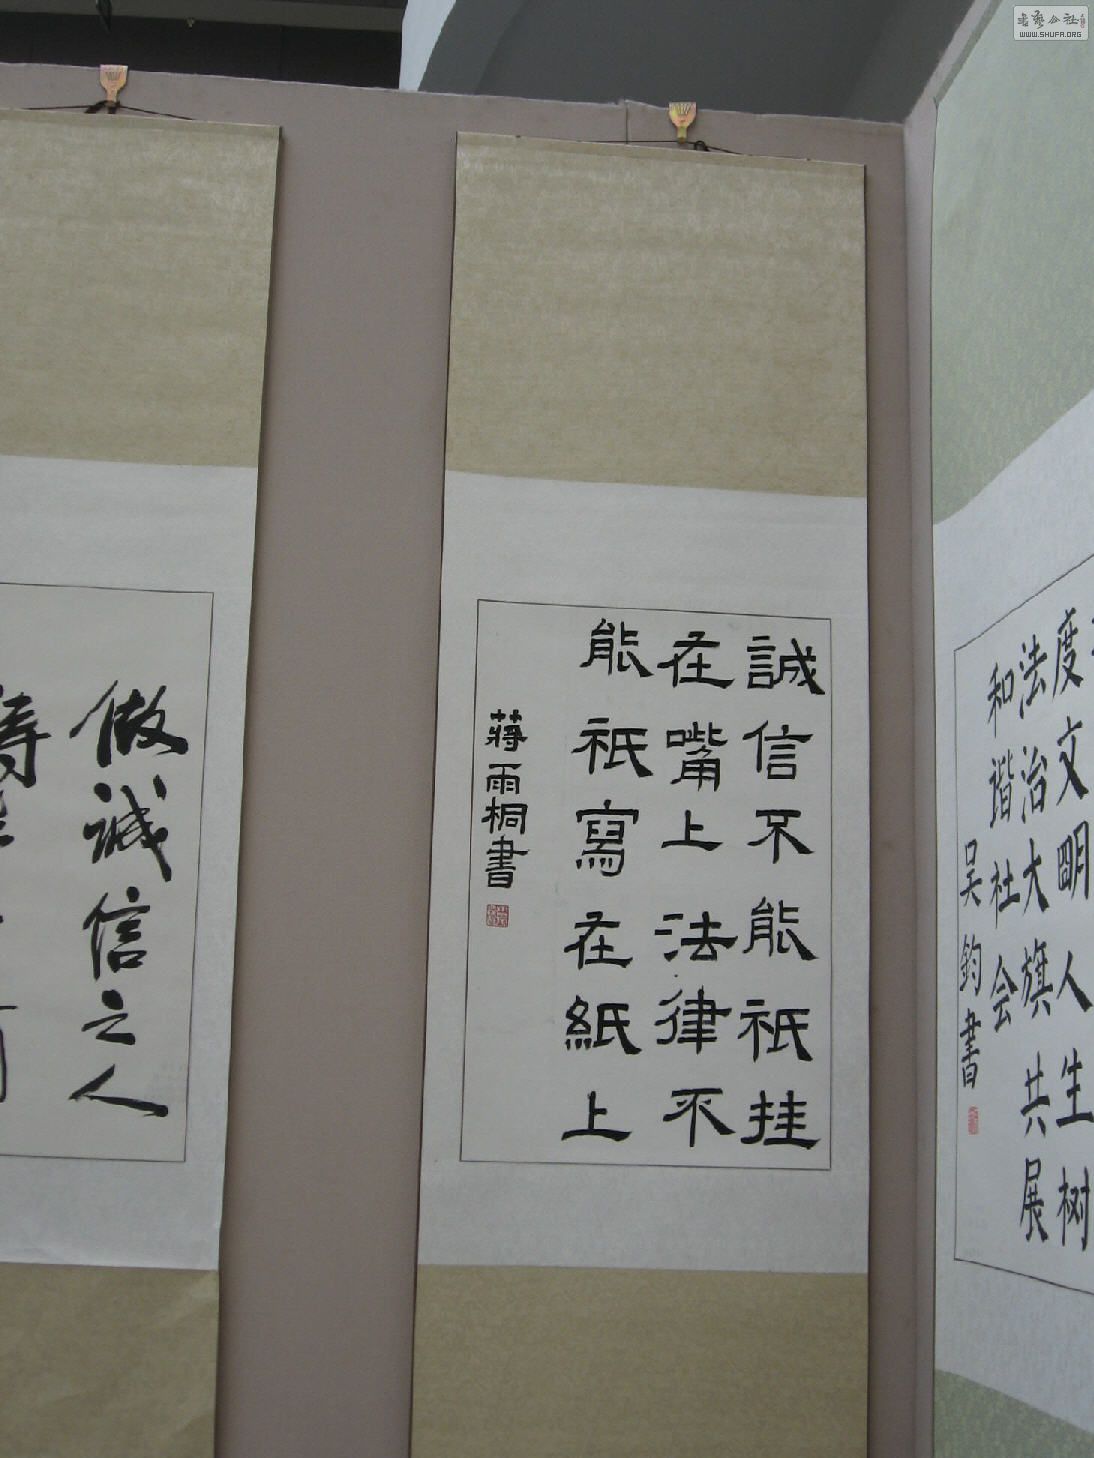 書藝公社
WWW.SHUFA.ORG
度文明人生树
法治大旗共展
和谐社会
吴鈞書
誠信不能祇挂
在嘴上法律不
能祇寫在紙上
蔣雨桐書
做诚信之人